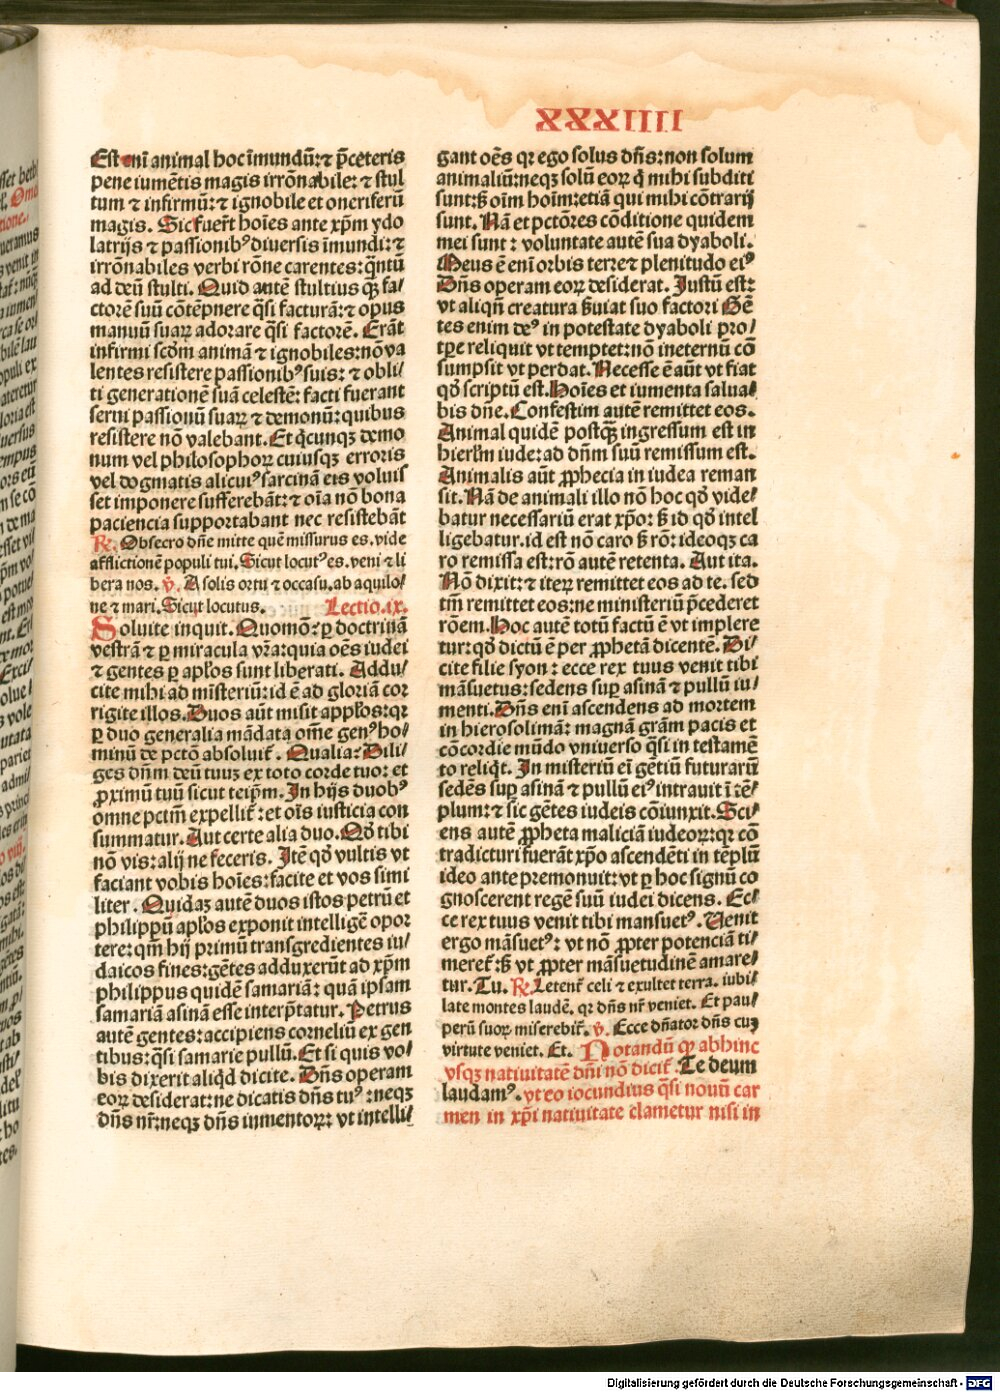 XXXIIII
Est eni animal hoc īmundū: ⁊ p̄ceteris
pene iumētis magis irrōnabile: ⁊ stul
tum ⁊ infirmū: ⁊ ignobile et oneriferū
magis. Sic fuer̄t hoīes ante xp̄m ydo
latrijs ⁊ passionibꝰ diuersis īmundi: ⁊
irrōnabiles verbi rōne carentes: q̄ntū
ad deū stulti. Quid autē stultius qꝫ̄ fa/
ctorē suū cōtēpnere q̄si facturā: ⁊ opus
manuū suaꝝ adorare q̄si factorē. Erāt
infirmi scḋm animā ⁊ ignobiles: nō va
lentes resistere passionibꝰ suis: ⁊ obli/
ti generationē suā celestē: facti fuerant
serui passionū suaꝝ ⁊ demonū: quibus
resistere nō valebant. Et q̄cunqꝫ demo
num vel philosophoꝝ cuiusqꝫ erroris
vel dogmatis alicuiꝰ sarcinā eis voluis
set imponere sufferebāt: ⁊ oīa nō bona
paciencia supportabant nec resistebāt
℞. Obsecro dn̄e mitte quē missurus es. vide
afflictionē populi tui. Sicut locutꝰ es. veni ⁊ li
bera nos. ℣. A solis ortu ⁊ occasu. ab aquilo/
ne ⁊ mari. Sicut locutus. Lectio.ix.
Soluite inquit. Quomō: ꝑ doctrinā
vestrā ⁊ ꝑ miracula vr̄a: quia oēs iudei
⁊ gentes ꝑ apl̄os sunt liberati. Addu/
cite mihi ad mīsteriū: id ē ad gloriā cor
rigite illos. Duos aūt misit app̄los: qꝛ
ꝑ duo generalia mādata om̄e genꝰ ho/
minū de pctō absoluit̄. Qualia: Dili/
ges dn̄m deū tuuꝫ ex toto corde tuo: et
ꝓximū tuū sicut teip̄m. In hijs duobꝰ
omne pctm̄ expellit̄: et oīs iusticia con
summatur. Aut certe alia duo. Qḋ tibi
nō vis: alij ne feceris. Itē qḋ vultis vt
faciant vobis hoīes: facite et vos simi
liter. Quidaꝫ autē duos istos petrū et
philippū apl̄os exponit intelligē opor
tere: qm̄ hij primū transgredientes iu/
daicos fines: gētes adduxerūt ad xp̄m
philippus quidē samariā: quā ipsam
samariā asinā esse interp̄tatur. Petrus
autē gentes: accipiens corneliū ex gen
tibus: q̄si samarie pullū. Et si quis vo/
bis dixerit aliqḋ dicite. Dn̄s operam
eoꝝ desiderat: ne dicatis dn̄s tuꝰ: neqꝫ
dn̄s nr̄: neqꝫ dn̄s iumentoꝝ: vt intelli/
gant oēs qꝛ ego solus dn̄s: non solum
animaliū: neqꝫ solū eoꝝ q̄ mihi subditi
sunt: s̄ oīm hoīm: etiā qui mihi cōtrarij
sunt. Nā et pctōres cōditione quidem
mei sunt: voluntate autē sua dyaboli.
Meus ē enī orbis terre ⁊ plenitudo eiꝰ
Dn̄s operam eoꝝ desiderat. Justū est:
vt aliqn̄ creatura s̄uiat suo factori Gē
tes enim deꝰ in potestate dyaboli pro/
tꝑe reliquit vt temptet: nō ineternū cō
sumpsit vt perdat. Necesse ē aūt vt fiat
qḋ scriptū est. Hoīes et iumenta salua/
bis dn̄e. Confestim autē remittet eos.
Animal quidē postqꝫ̄ ingressum est in
hierl̄m iude: ad dn̄m suū remissum est.
Animalis aūt ꝓphecia in iudea reman
sit. Nā de animali illo nō hoc qḋ vide/
batur necessariū erat xp̄o: s̄ id qḋ intel
ligebatur. id est nō caro s̄ rō: ideoqꝫ ca
ro remissa est: rō autē retenta. Aut ita.
Nō dixit: ⁊ iteꝝ remittet eos ad te. sed
tm̄ remittet eos: ne ministeriū p̄cederet
rōem. Hoc autē totū factū ē vt implere
tur: qḋ dictū ē per ꝓphetā dicentē. Di/
cite filie syon: ecce rex tuus venit tibi
māsuetus: sedens suꝑ asinā ⁊ pullū iu/
menti. Dn̄s enī ascendens ad mortem
in hierosolimā: magnā grām pacis et
cōcordie mūdo vniuerso q̄si in testamē
to reliqt̄. In misteriū eī gētiū futurarū
sedēs suꝑ asinā ⁊ pullū eiꝰ intrauit ī tē/
plum: ⁊ sic gētes iudeis cōiunxit. Sci/
ens autē ꝓpheta maliciā iudeoꝝ: qꝛ cō
tradicturi fuerāt xp̄o ascendēti in tēplū
ideo ante premonuit: vt ꝑ hoc signū co
gnoscerent regē suū iudei dicens. Ec/
ce rex tuus venit tibi mansuetꝰ. Uenit
ergo māsuetꝰ: vt nō ꝓpter potenciā ti/
meret̄: s̄ vt ꝓpter māsuetudinē amare/
tur. Tu. ℞. Letent̄ celi ⁊ exultet terra. iubi/
late montes laudē. qꝛ dn̄s nr̄ veniet. Et pau/
perū suoꝝ miserebit̄. ℣. Ecce dn̄ator dn̄s cuꝫ
virtute veniet. Et. Notandū ꝙ abhinc
vsqꝫ natiuitatē dn̄i nō dicit̄ Te deum
laudamꝰ. vt eo iocundius q̄si nouū car
men in xp̄i natiuitate clametur nisi in
Digitalisierung gefördert durch die Deutsche Forschungsgemeinschaft - DFG